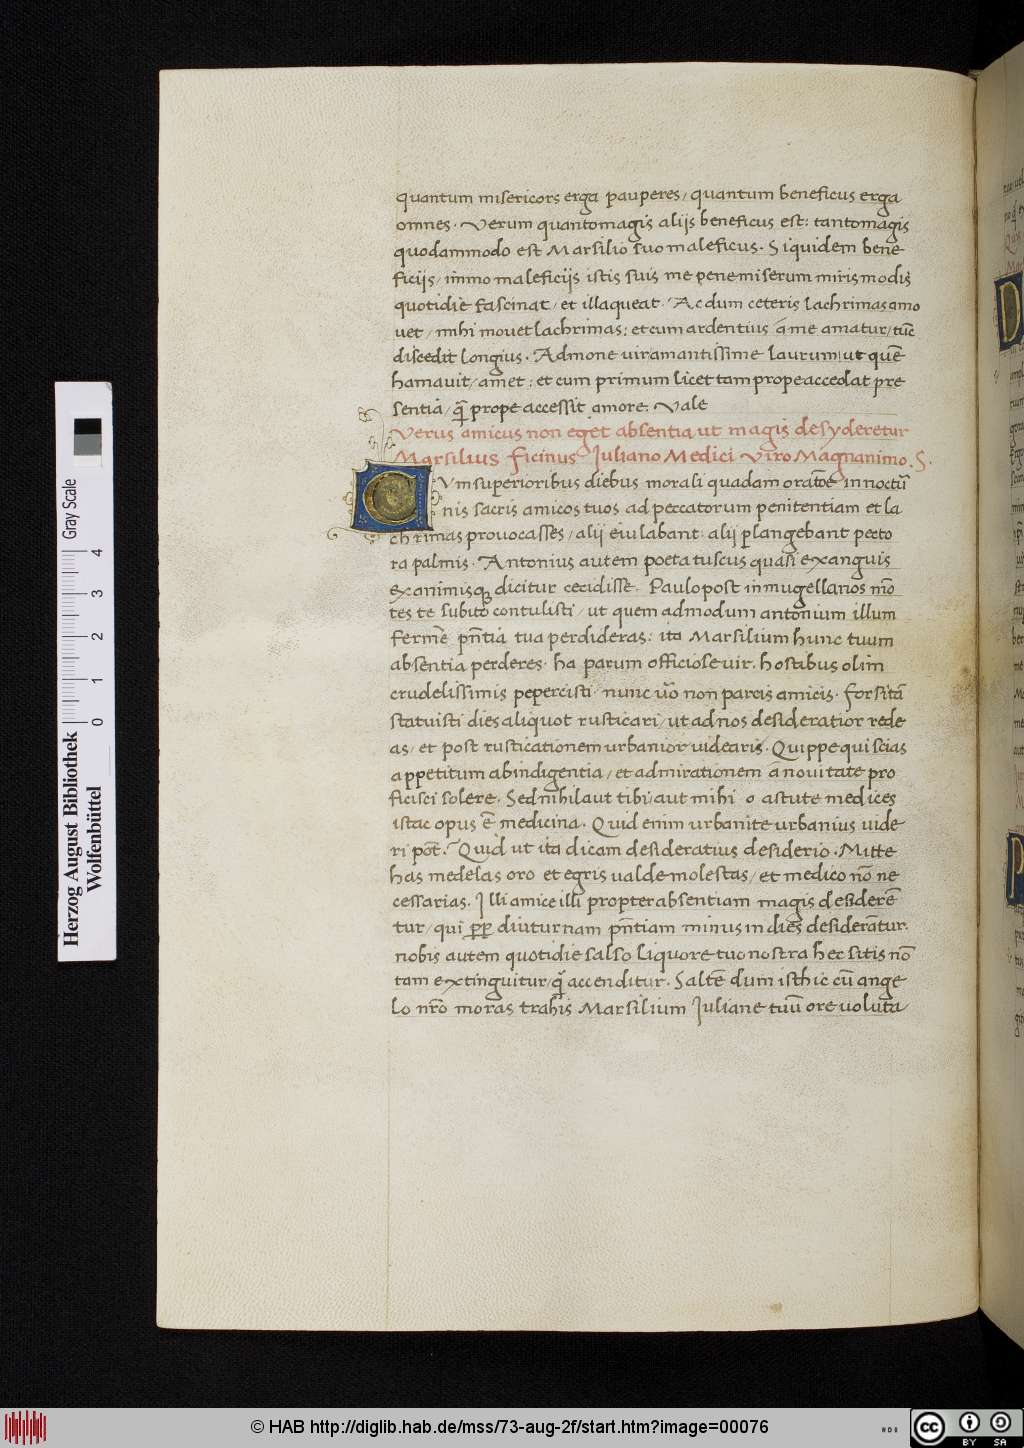 quantum misericors erga pauperes / quantum beneficus erga
omnes · Verum quantomagis aliis beneficus est : tantomagis
quodammodo est Marsilio suo maleficus · Siquidem bene-
ficiis / immo maleficiis istis suis me pene miserum miris modis
quotidie fascinat / et illaqueat · Ac dum ceteris lachrimas amo
vet / mihi movet lachrimas : et cum ardentius a me amatur / tūc
discedit longius · Admone vir amantissime laurum / ut quē
hamavit / amet : et cum primum licet tam prope accedat pre
sentia / q̄ prope accessit amore · Vale
Verus amicus non eget absentia ut magis desyderetur
Marsilius Ficinus Iuliano Medici Viro Magnanimo . S .
CVm superioribus diebus morali quadam oratōe innoctū
nis sacris amicos tuos ad peccatorum penitentiam et la
chrimas provocasses / alij eiulabant : alij plangebant pecto
ra palmis · Antonius autem poeta tuscus quasi exanguis
exanimisq; dicitur cecidisse · Paulopost in mugellanos mō
tes te subito contulisti / ut quem admodum antonium illum
ferme pn̄tia tua perdideras : ita Marsilium hunc tuum
absentia perderes · ha parum officiose vir · hostibus olim
crudelissimis pepercisti · nunc ūo non parcis amicis · forsitā
statuisti dies aliquot rusticari / ut ad nos desideratior rede
as / et post rusticationem urbanior videaris · Quippe qui scias
appetitum ab indigentia / et admirationem a novitate pro
ficisci solere · Sed nihil aut tibi / aut mihi o astute medices
istac opus ē medicina · Quid enim urbanite urbanius vide
ri pōt ? Quid ut ita dicam desideratius desiderio · Mitte
has medelas oro et egris valde molestas / et medico nō ne
cessarias · Illi amice illi propter absentiam magis desiderē
tur / qui p̄p̄ diuturnam pn̄tiam minus in dies desiderātur ·
nobis autem quotidie salso liquore tuo nostra hec sitis nō
tam extinguitur / q̄ accenditur · Saltē dum isthic cū ange
lo nr̄o moras trahis Marsilium Iuliane tuū ore voluta
Herzog August Bibliothek
Wolfenbüttel
Gray Scale
0 1 2 3 4
© HAB http://diglib.hab.de/mss/73-aug-2f/start.htm?image=00076
HAB
cc BY SA